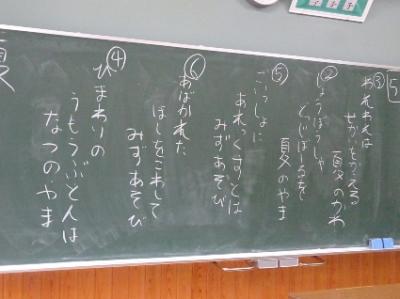 5
③
われわれは
せかいをかえる
夏のかわ
②
しょうぼうしゃ
どっじぼーるを
夏のやま
⑤
ごいっしょに
あれっくすとは
みずあそび
⑥
あばかれた
ほしをこわして
みずあそび
④
ひまわりの
うもうぶとんは
なつのやま
夏